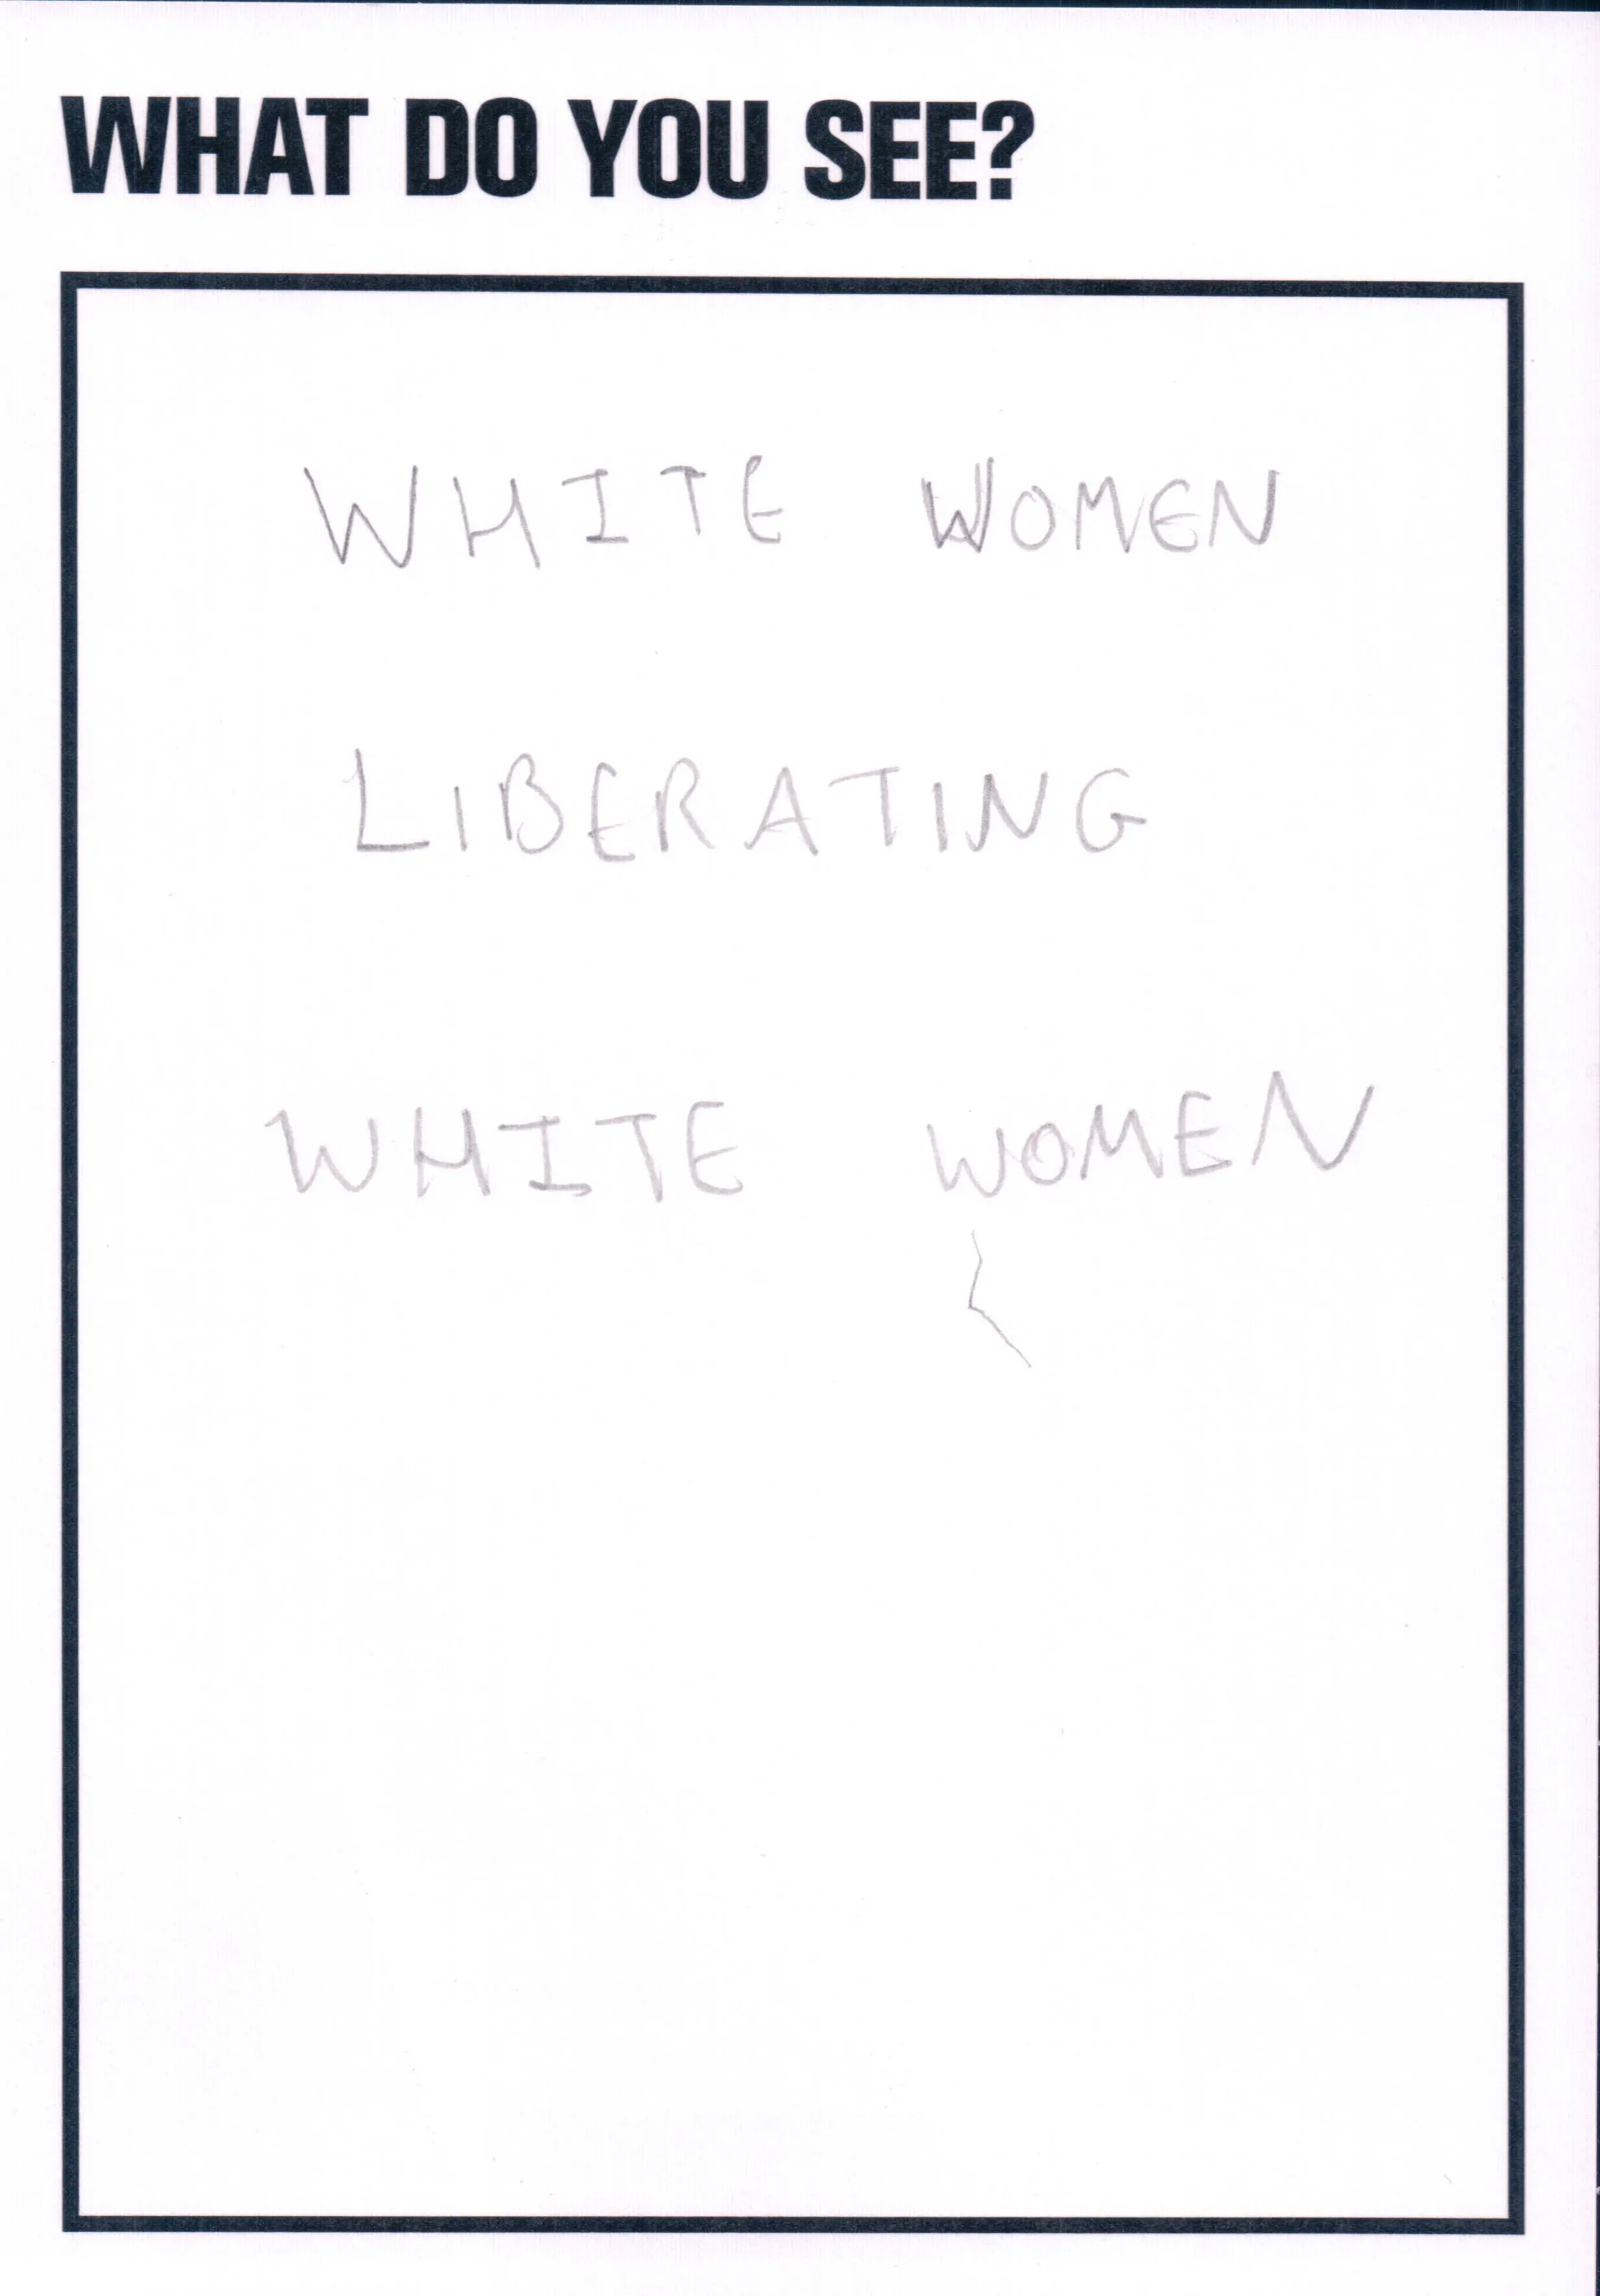 WHAT DO YOU SEE?
WHITE WOMEN
LIBERATING
WHITE WOMEN